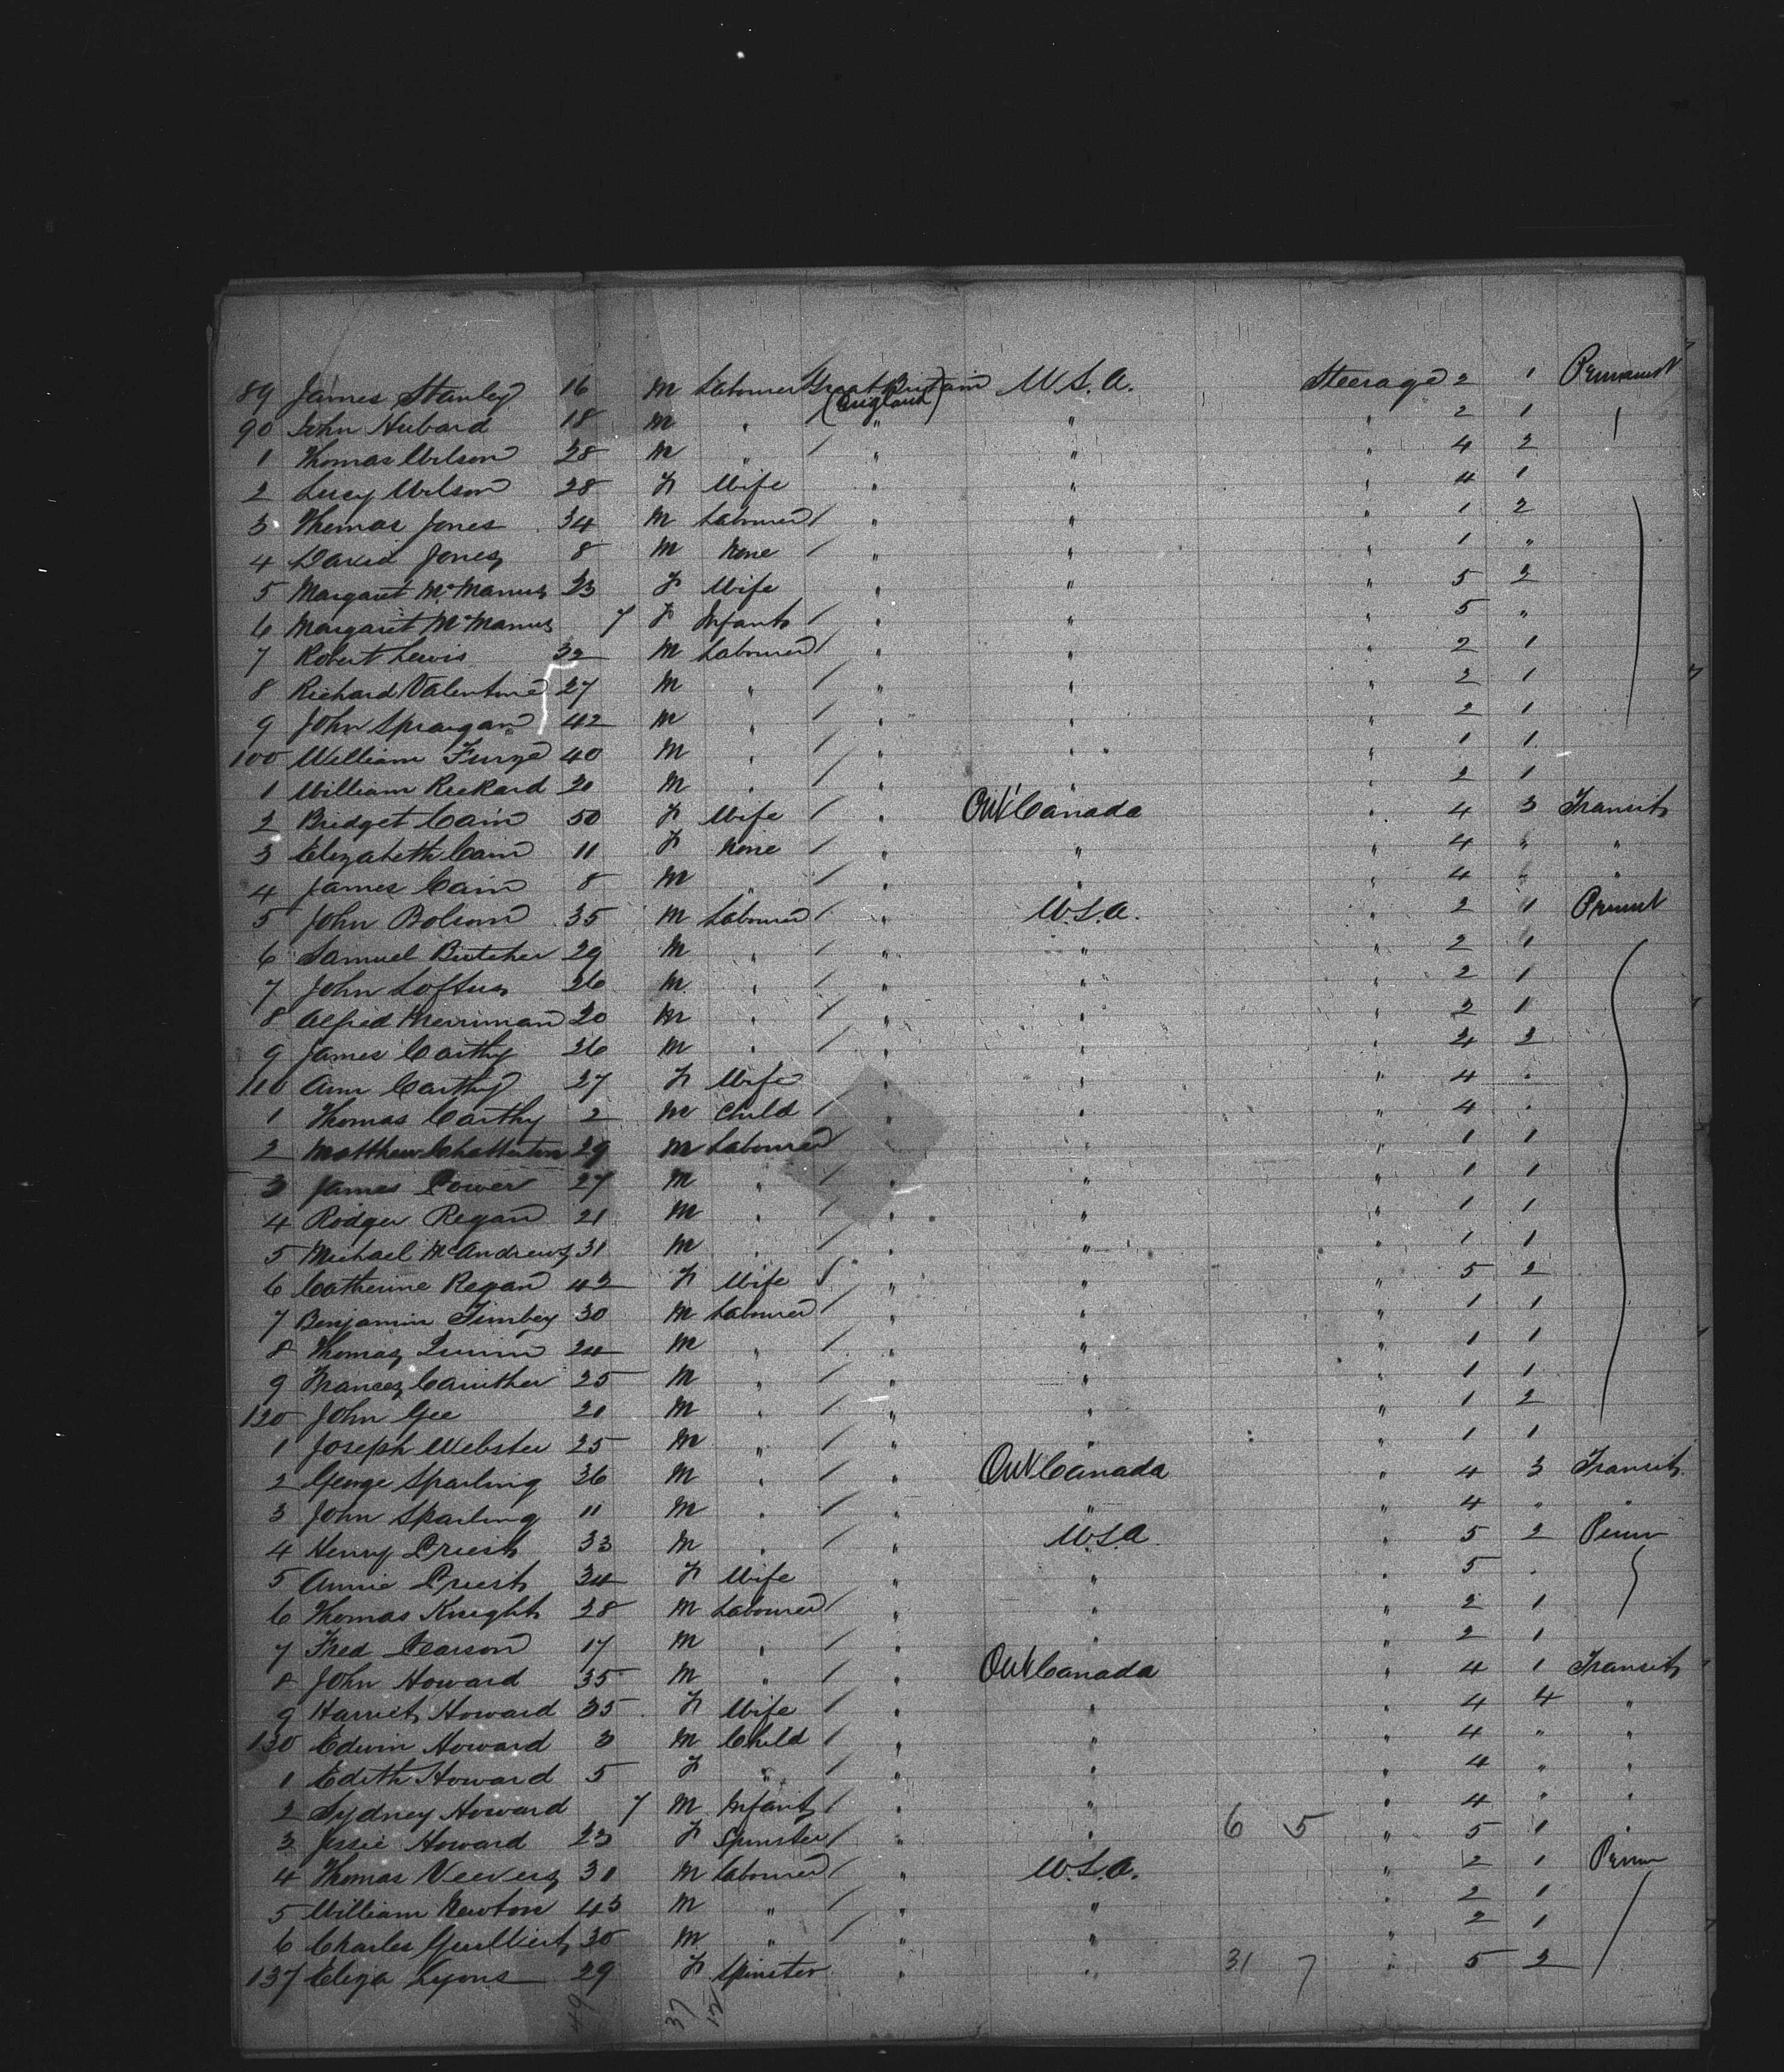 89 James Stanley 16 M Labourer Great Britain U.S.A. Steerage 2 1 Permanent
(England)
90 John Hubard 18 M " / " " " 2 1
1 Thomas Wilson 28 M " / " " " 4 2
2 Lucy Wilson 28 F Wife " " " 4 1
3 Thomas Jones 34 M Labourer / " " " 1 2
4 David Jones 8 M None / " " " 1 "
5 Margaret McManus 23 F Wife " " " 5 2
6 Margaret McManus 7 F Infant / " " " 5 "
7 Robert Lewis 32 M Labourer / " " " 2 1
8 Richard Valentine 27 M " / " " " 2 1
9 John Spraigan 42 M " / " " " 2 1
100 William Furze 40 M " / " " " 1 1
1 William Rickard 20 M " / " " " 2 1
2 Bridget Cain 50 F Wife / " Ont Canada " 4 3 Transit
3 Elizabeth Cain 11 F None / " " " 4 " "
4 James Cain 8 M " / " " " 4 " "
5 John Bolson 35 M Labourer / " U.S.A. " 2 1
6 Samuel Butcher 29 M " / " " " 2 1
7 John Loftus 26 M " / " " " 2 1
8 Alfred Merriman 20 M " / " " " 2 1
9 James Carthy 26 M " / " " " 4 2
110 Ann Carthy 27 F Wife " " " 4 "
1 Thomas Carthy 2 M Child / " " " 4 "
2 Matthew Chatterton 29 M Labourer " " " 1 1
3 James Power 27 M " / " " " 1 1
4 Rodger Regan 21 M " / " " " 1 1
5 Michael McAndrews 31 M " / " " " 1 1
6 Catherine Regan 42 F Wife / " " " 5 2
7 Benjamin Timbey 30 M Labourer / " " " 1 1
8 Thomas Quinn 24 M " / " " " 1 1
9 Frances Cauther 25 M " / " " " 1 1
120 John Gee 21 M " / " " " 1 2
1 Joseph Webster 25 M " / " " " 1 1
2 George Sparling 36 M " / " Ont Canada " 4 3 Transit
3 John Sparling 11 M " / " " " 4 " "
4 Henry Priest 33 M " / " U.S.A. " 5 2 Perm
5 Annie Priest 34 F Wife " " " 5 "
6 Thomas Knight 28 M Labourer / " " " 2 1
7 Fred Pearson 17 M " / " " " 2 1
8 John Howard 35 M " / " Ont Canada " 4 1 Transit
9 Harriet Howard 35 F Wife / " " " 4 4 "
130 Edwin Howard 3 M Child / " " " 4 " "
1 Edith Howard 5 F " / " " " 4 " "
2 Sydney Howard 7 M Infant / " " " 4 " "
3 Jessie Howard 23 F Spinster / " " 6 5 " 5 1 "
4 Thomas Veevers 31 M Labourer / " U.S.A. " 2 1 Perm
5 William Newton 43 M " / " " " 2 1
6 Charles 30 M " / " " " 2 1
137 Eliza Lyons 29 F Spinster " " 31 7 " 5 2
49 37